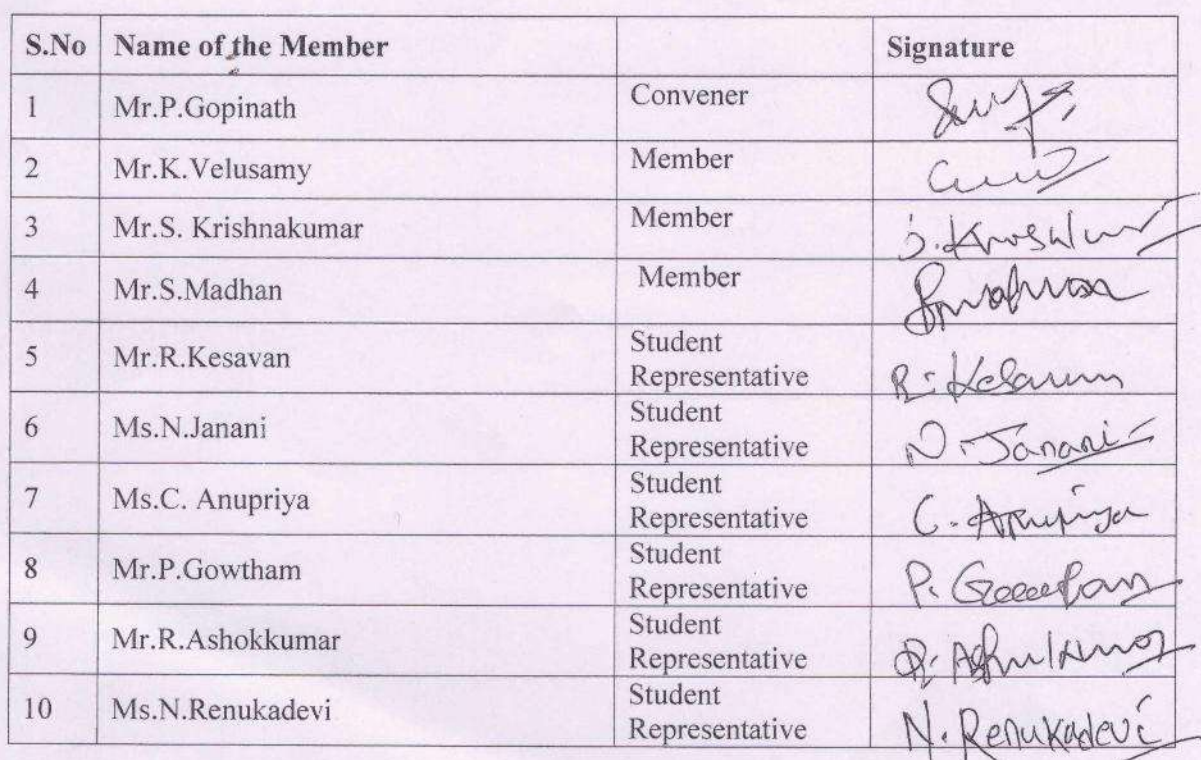 S.No Name of the Member Signature
1 Mr.P.Gopinath Convener
2 Mr.K.Velusamy Member
3 Mr.S. Krishnakumar Member S.
4 Mr.S.Madhan Member
5 Mr.R.Kesavan Student
Representative R. Kesavan
6 Ms.N.Janani Student
Representative N. Janani
7 Ms.C. Anupriya Student
Representative C. Anupriya
8 Mr.P.Gowtham Student
Representative P. Gowtham
9 Mr.R.Ashokkumar Student
Representative R. Ashokkumar
10 Ms.N.Renukadevi Student
Representative N. Renukadevi